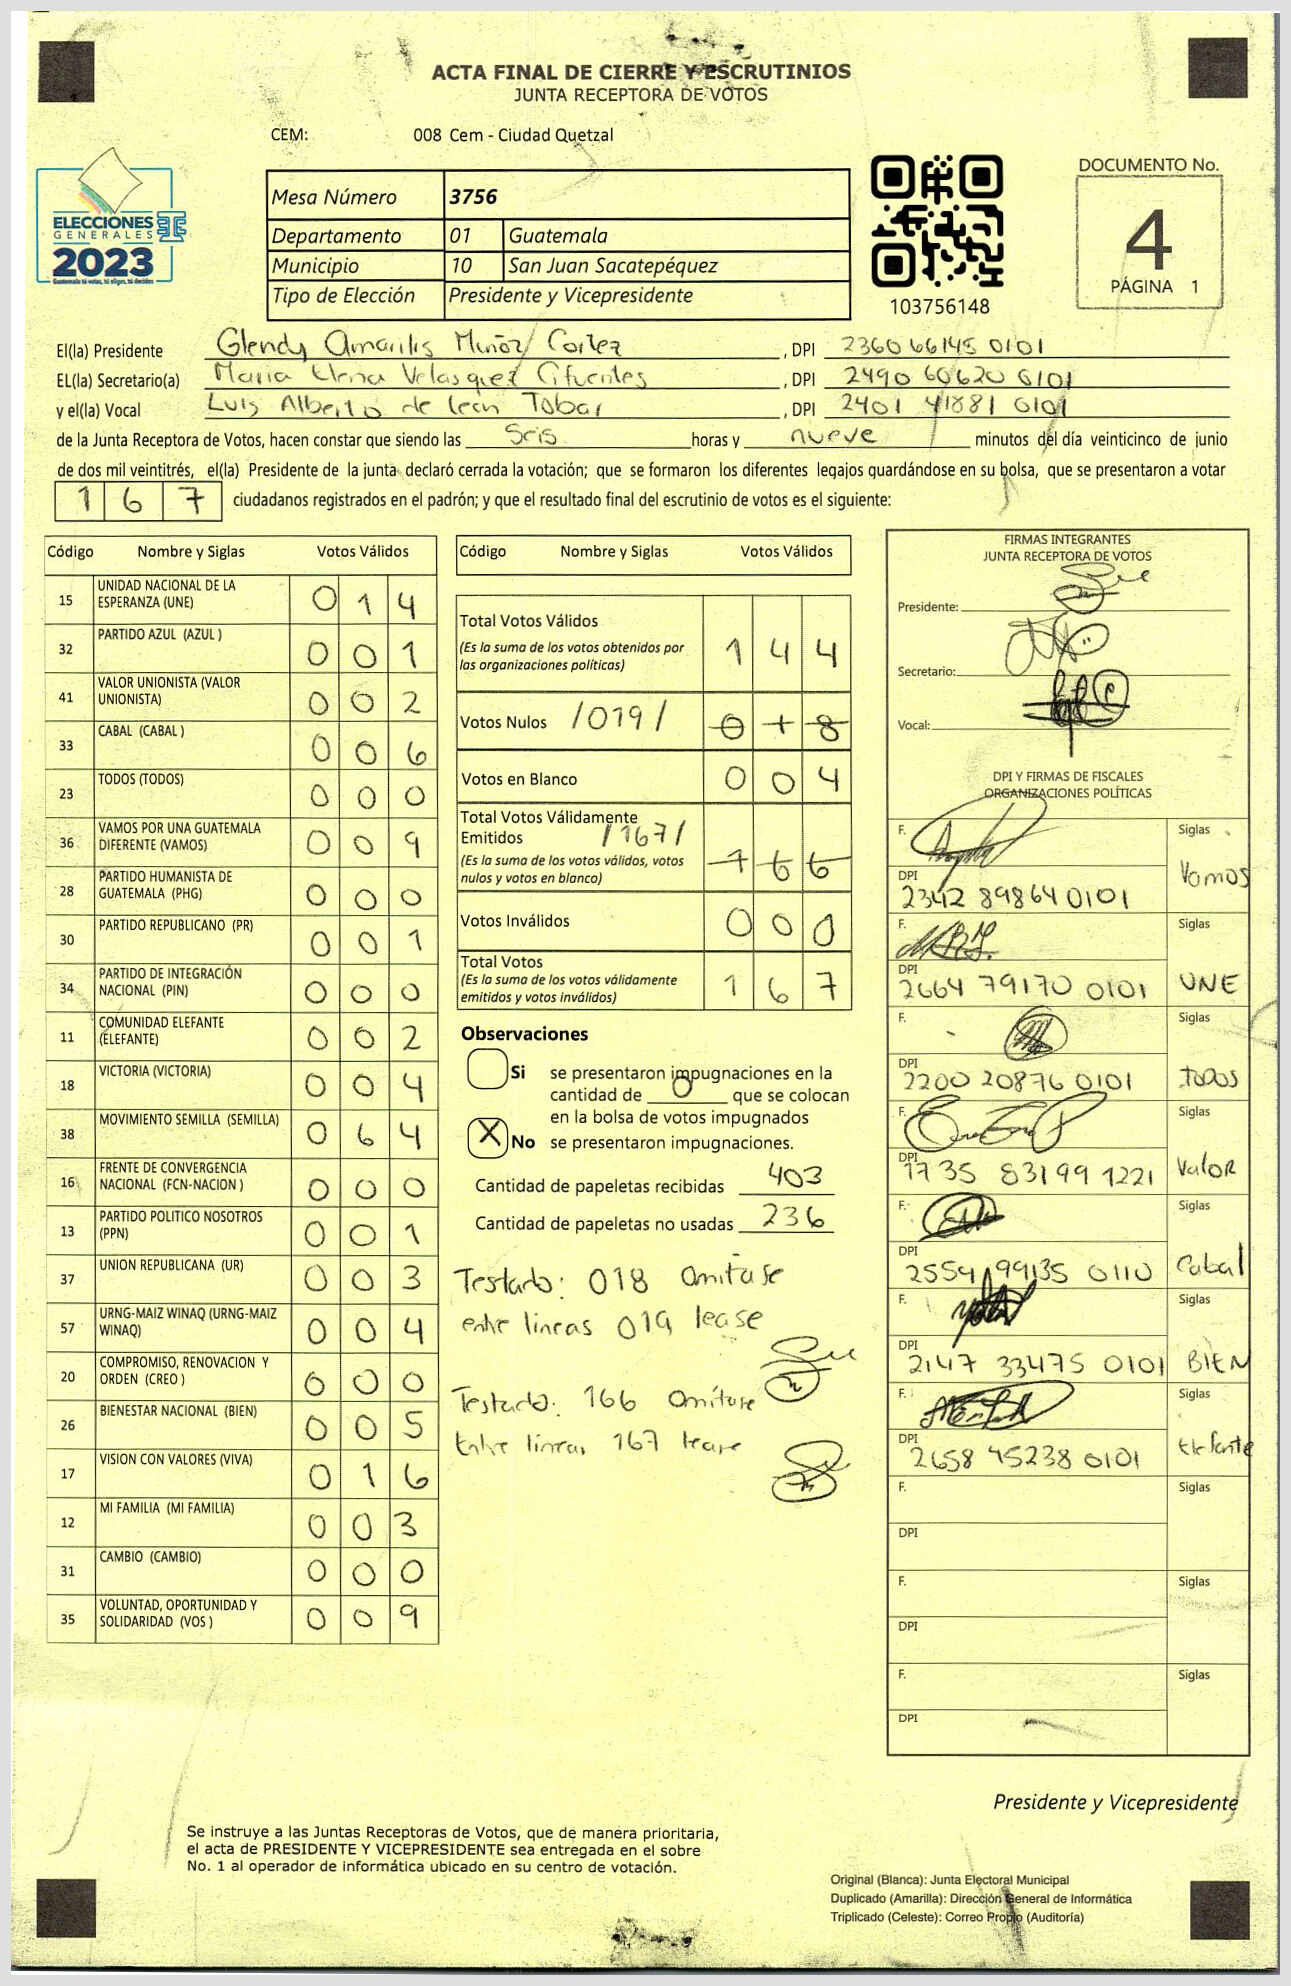 ACTA FINAL DE CIERRE Y ESCRUTINIOS
JUNTA RECEPTORA DE VOTOS
CEM: 008 Cem - Ciudad Quetzal
ELECCIONES
GENERALES
2023
Guatemala tú votas, tú eliges, tú decides
Mesa Número 3756
Departamento 01 Guatemala
Municipio 10 San Juan Sacatepéquez
Tipo de Elección Presidente y Vicepresidente
103756148
DOCUMENTO No.
4
PÁGINA 1
El(la) Presidente Glendy Amarilis Muñoz Cortez , DPI 2360 66145 0101
EL(la) Secretario(a) Maria Elena Velasquez Cifuentes , DPI 2490 60620 0101
y el(la) Vocal Luis Alberto de león Tobar , DPI 2401 41881 0101
de la Junta Receptora de Votos, hacen constar que siendo las Seis horas y nueve minutos del día veinticinco de junio
de dos mil veintitrés, el(la) Presidente de la junta declaró cerrada la votación; que se formaron los diferentes legajos guardándose en su bolsa, que se presentaron a votar
1 6 7 ciudadanos registrados en el padrón; y que el resultado final del escrutinio de votos es el siguiente:
Código Nombre y Siglas Votos Válidos
15 UNIDAD NACIONAL DE LA ESPERANZA (UNE) 0 1 4
32 PARTIDO AZUL (AZUL ) 0 0 1
41 VALOR UNIONISTA (VALOR UNIONISTA) 0 0 2
33 CABAL (CABAL ) 0 0 6
23 TODOS (TODOS) 0 0 0
36 VAMOS POR UNA GUATEMALA DIFERENTE (VAMOS) 0 0 9
28 PARTIDO HUMANISTA DE GUATEMALA (PHG) 0 0 0
30 PARTIDO REPUBLICANO (PR) 0 0 1
34 PARTIDO DE INTEGRACIÓN NACIONAL (PIN) 0 0 0
11 COMUNIDAD ELEFANTE (ELEFANTE) 0 0 2
18 VICTORIA (VICTORIA) 0 0 4
38 MOVIMIENTO SEMILLA (SEMILLA) 0 6 4
16 FRENTE DE CONVERGENCIA NACIONAL (FCN-NACION ) 0 0 0
13 PARTIDO POLITICO NOSOTROS (PPN) 0 0 1
37 UNION REPUBLICANA (UR) 0 0 3
57 URNG-MAIZ WINAQ (URNG-MAIZ WINAQ) 0 0 4
20 COMPROMISO, RENOVACION Y ORDEN (CREO ) 0 0 0
26 BIENESTAR NACIONAL (BIEN) 0 0 5
17 VISION CON VALORES (VIVA) 0 1 6
12 MI FAMILIA (MI FAMILIA) 0 0 3
31 CAMBIO (CAMBIO) 0 0 0
35 VOLUNTAD, OPORTUNIDAD Y SOLIDARIDAD (VOS ) 0 0 9
Código Nombre y Siglas Votos Válidos
Total Votos Válidos 1 4 4
(Es la suma de los votos obtenidos por
las organizaciones políticas)
Votos Nulos /019/ 0 1 8
Votos en Blanco 0 0 4
Total Votos Válidamente
Emitidos /167/ 1 6 6
(Es la suma de los votos válidos, votos
nulos y votos en blanco)
Votos Inválidos 0 0 0
Total Votos 1 6 7
(Es la suma de los votos válidamente
emitidos y votos inválidos)
Observaciones
Si se presentaron impugnaciones en la
cantidad de 0 que se colocan
en la bolsa de votos impugnados
X No se presentaron impugnaciones.
Cantidad de papeletas recibidas 403
Cantidad de papeletas no usadas 236
Testado: 018 Omitase
entre lineas 019 lease
Testado: 166 Omítase
Entre lineas 167 lease
FIRMAS INTEGRANTES
JUNTA RECEPTORA DE VOTOS
Presidente:
Secretario:
Vocal:
DPI Y FIRMAS DE FISCALES
ORGANIZACIONES POLÍTICAS
F. Siglas
DPI 2342 89864 0101 Vamos
F. Siglas
DPI 2664 79170 0101 UNE
F. Siglas
DPI 2200 20876 0101 TODOS
F. Siglas
DPI 1735 83199 1221 Valor
F. Siglas
DPI 2554 99135 0110 Cabal
F. Siglas
DPI 2147 33475 0101 BIEN
F. Siglas
DPI 2658 45238 0101 Elefante
F. Siglas
DPI
F. Siglas
DPI
F. Siglas
DPI
Presidente y Vicepresidente
Se instruye a las Juntas Receptoras de Votos, que de manera prioritaria,
el acta de PRESIDENTE Y VICEPRESIDENTE sea entregada en el sobre
No. 1 al operador de informática ubicado en su centro de votación.
Original (Blanca): Junta Electoral Municipal
Duplicado (Amarilla): Dirección General de Informática
Triplicado (Celeste): Correo Propio (Auditoría)